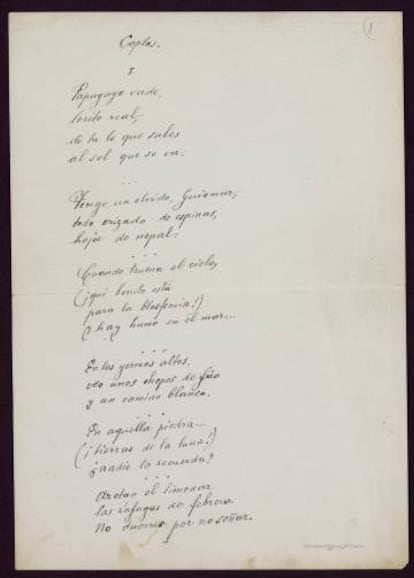 Coplas.
1
Papagayo verde,
lorito real,
di tu lo que sabes
al sol que se va.
...
Tengo un olvido, Guiomar,
todo erizado de espinas,
hoja de nopal.
...
Cuando truena el cielo,
(¡qué bonito está
para la blasfemia!)
y hay humo en el mar...
...
En los yermos altos,
veo unos chopos de frío
y un camino blanco.
...
En aquella piedra...
(¡tierras de la luna!)
¿nadie lo recuerda?
...
Azotan el limonar
las ráfagas de febrero.
No duermo por no soñar.